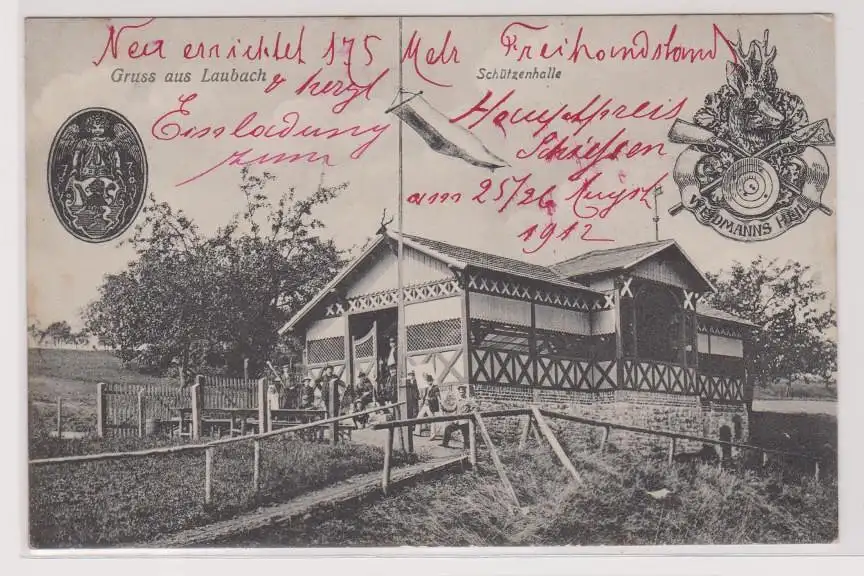 Neu errichtet 175 Metr Freihandstand
Gruss aus Laubach
Schützenhalle
& herzl
Einladung
zum
Haupt Preis
Schießen
am 25/26 August
1912
WEIDMANNS HEIL